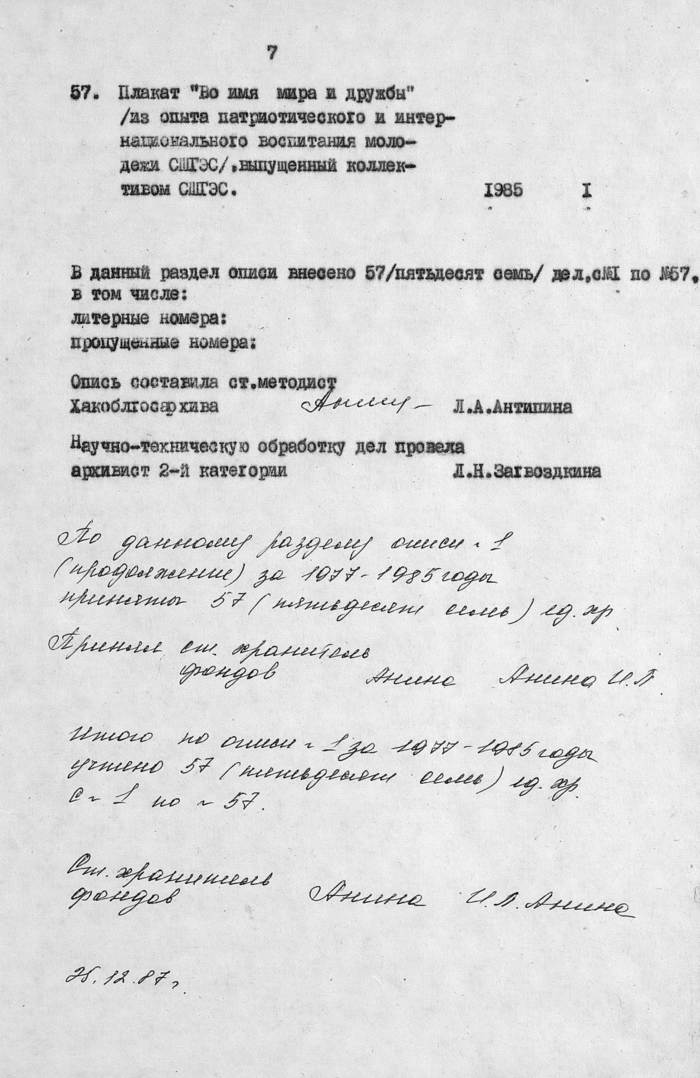 7
57. Плакат "Во имя мира и дружбы"
/из опыта патриотического и интер-
национального воспитания моло-
дежи СШГЭС/,выпущенный коллек-
тивом СШГЭС. 1985 I
В данный раздел описи внесено 57/пятьдесят семь/ дел,с№I по №57,
в том числе:
литерные номера:
пропущенные номера:
Опись составила ст.методист
Хакоблгосархива Л.А.Антипина
Научно-техническую обработку дел провела
архивист 2-й категории Л.Н.Загвоздкина
По данному разделу описи № 1
(продолжение) за 1977-1985 годы
приняты 57 (пятьдесят семь) ед. хр.
Принял ст. хранитель
фондов Анина Анина И.П.
Итого по описи № 1 за 1977-1985 годы
учтено 57 (пятьдесят семь) ед. хр.
с № 1 по № 57.
Ст. хранитель
фондов Анина И.П. Анина
25.12.87 г.